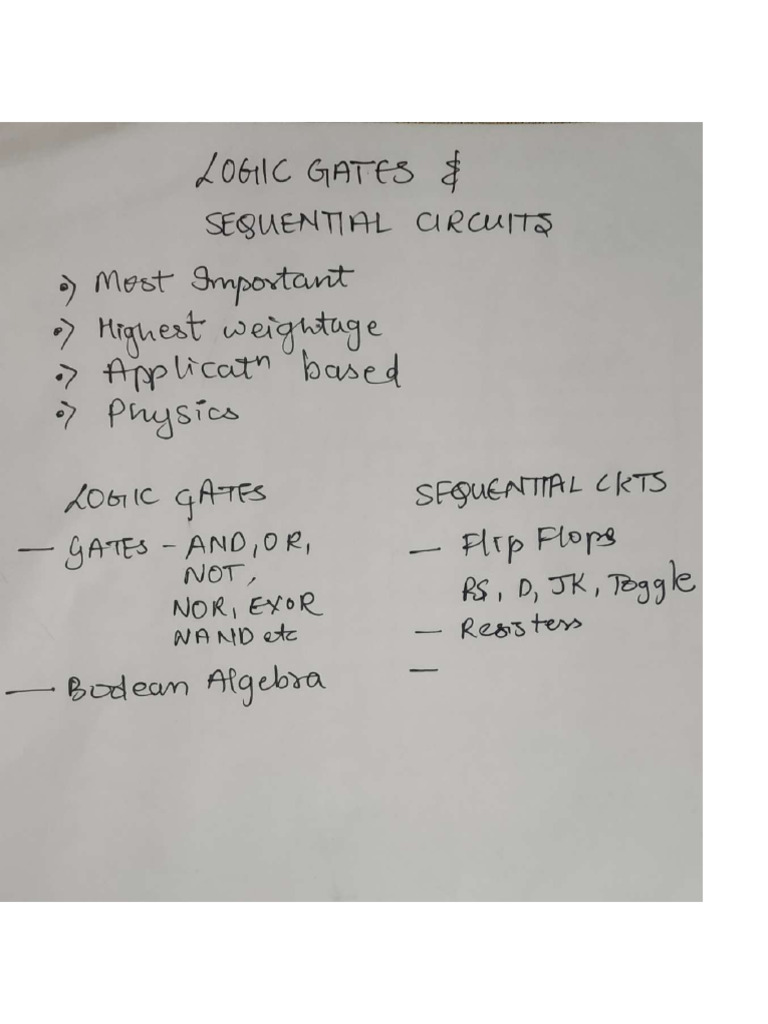 LOGIC GATES &
SEQUENTIAL CIRCUITS
•) Most Important
•) Highest weightage
•) Applicatn based
•) Physics
LOGIC GATES
— GATES - AND, OR,
NOT,
NOR, EXOR
NAND etc
— Boolean Algebra
SEQUENTIAL CKTS
— Flip Flops
RS, D, JK, Toggle
— Resisters
—